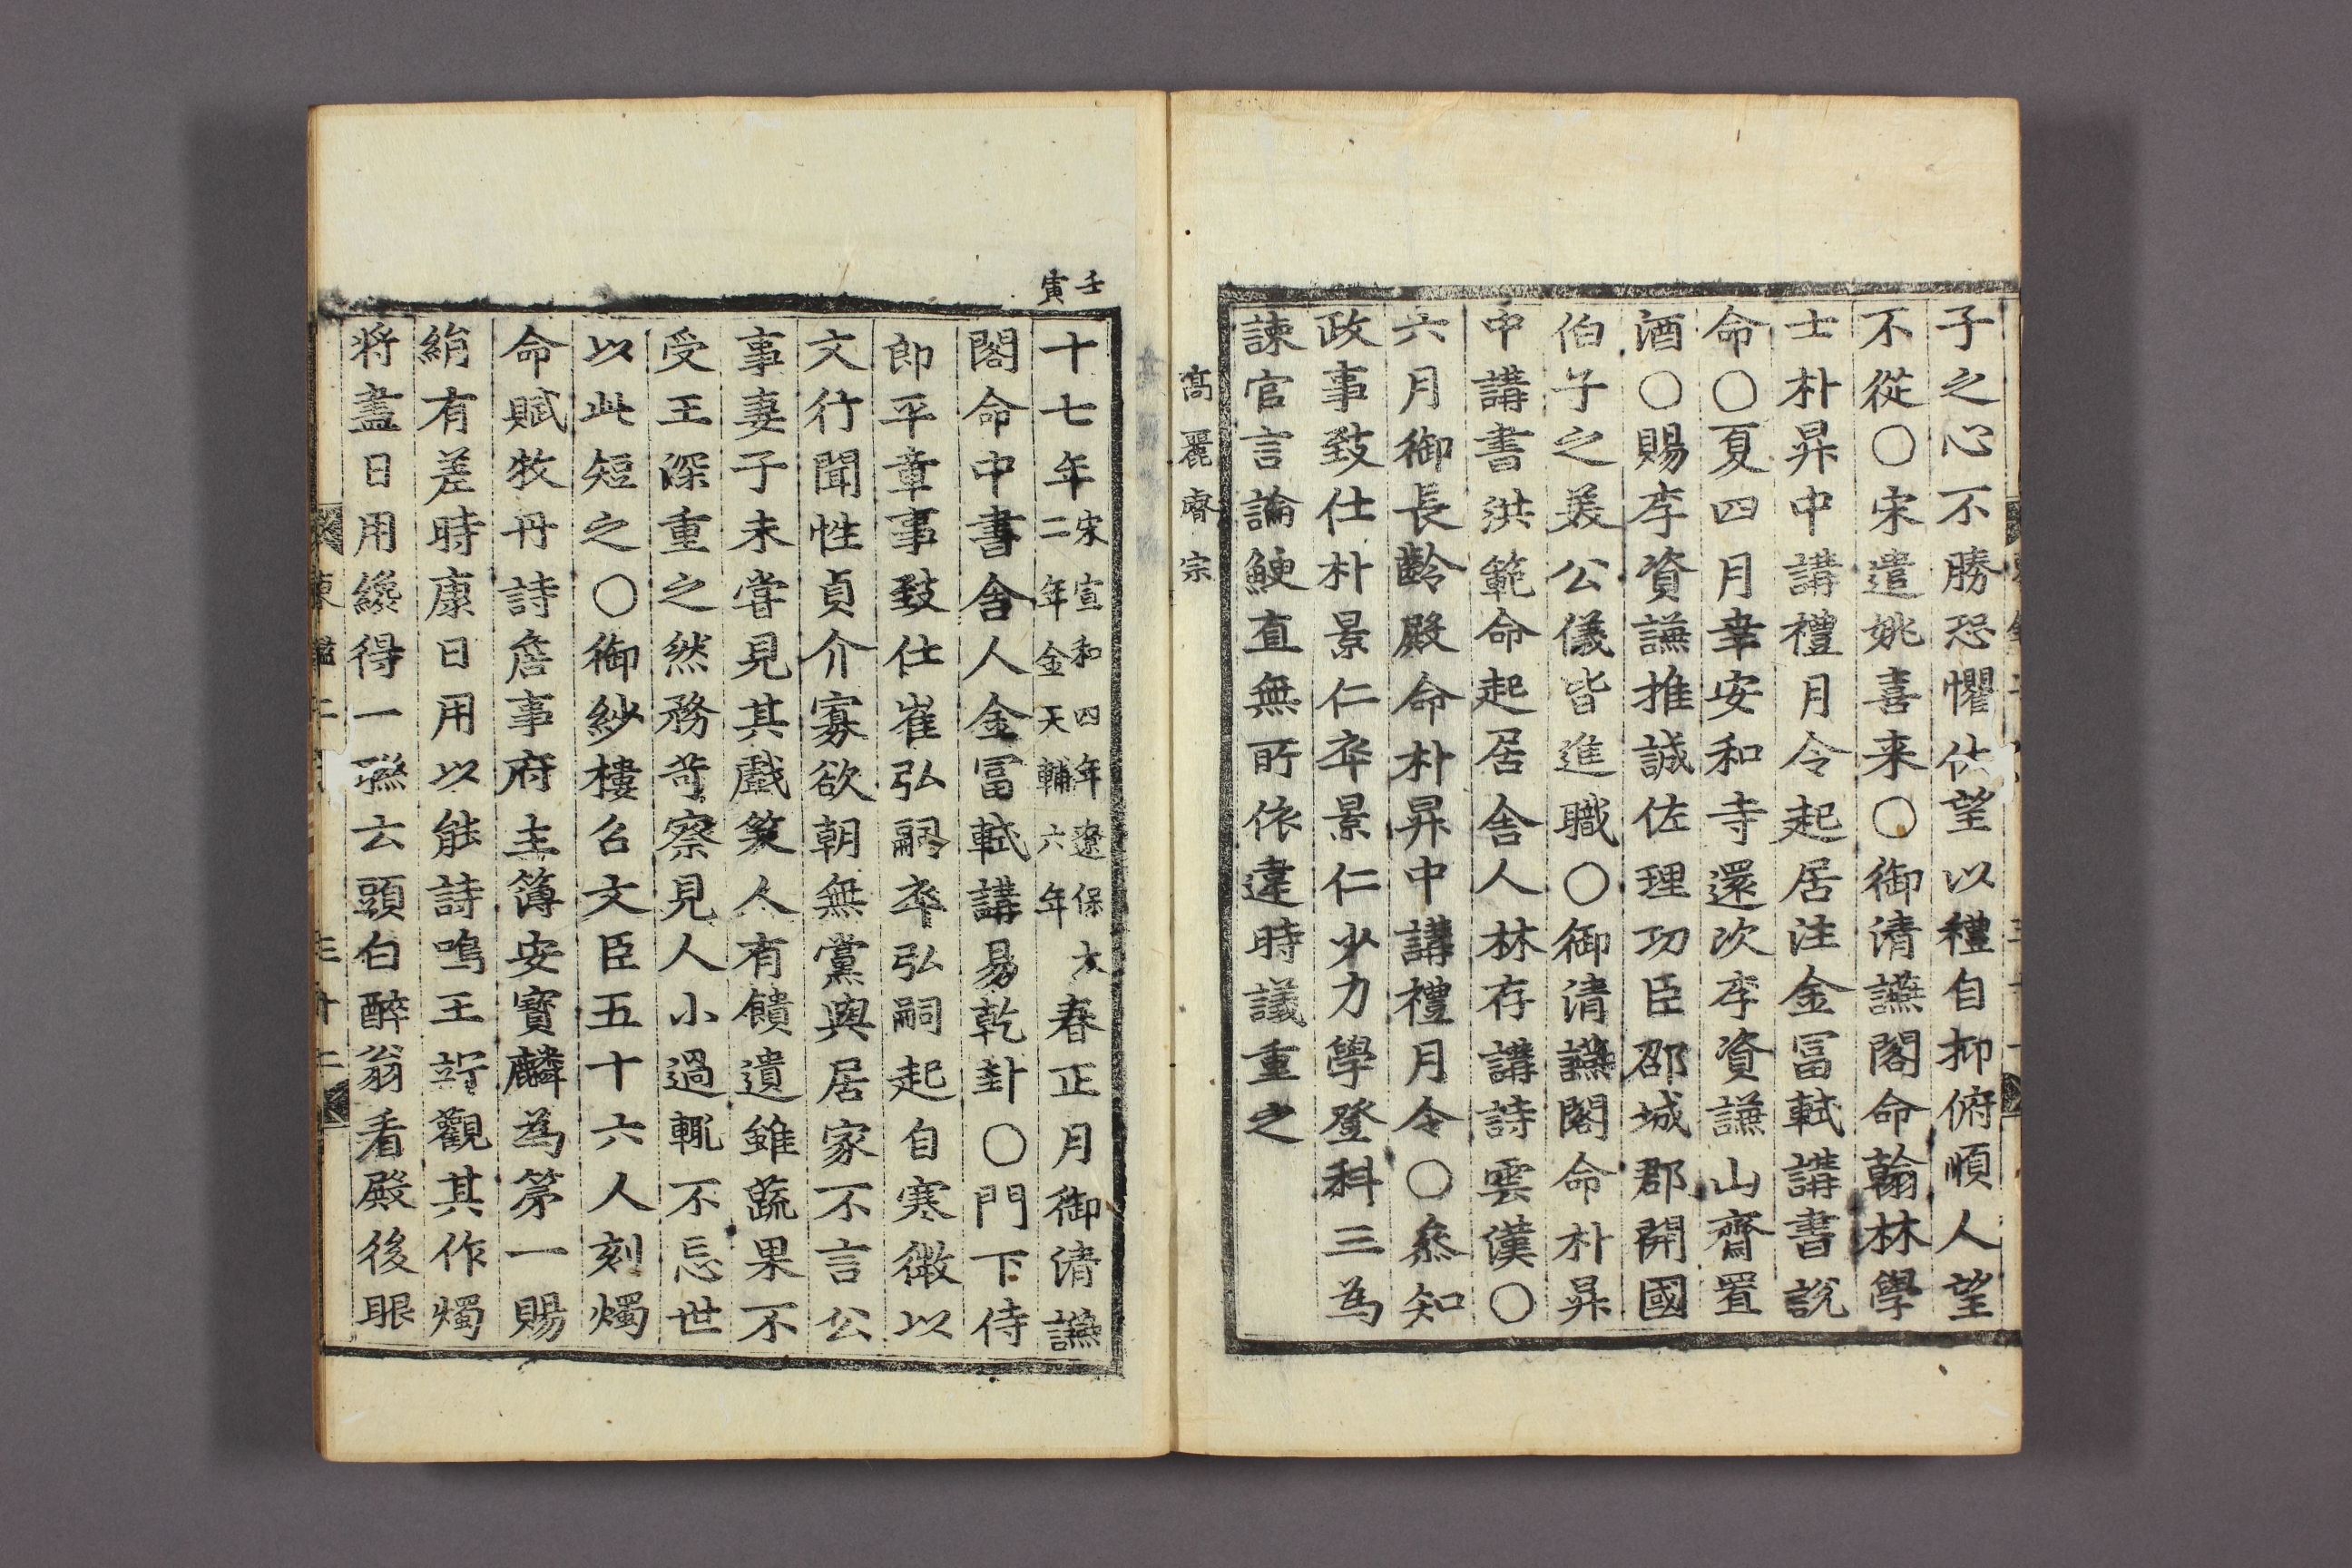 子之心不勝恐懼佇望以禮自抑俯順人望
不從○宋遣姚喜來○御清讌閣命翰林學
士朴昇中講禮月令起居注金冨軾講書說
命○夏四月幸安和寺還次李資謙山齋置
酒○賜李資謙推誠佐理功臣邵城郡開國
伯子之美公儀皆進職○御清讌閣命朴昇
中講書洪範命起居舎人林存講詩雲漢○
六月御長齡殿命朴昇中講禮月令○叅知
政事致仕朴景仁卒景仁少力學登科三為
諫官言論鯁直無所依違時議重之
高麗睿宗
壬寅
十七年宋宣和四年遼保大二年金天輔六年春正月御清讌
閣命中書舎人金冨軾講易乾卦○門下侍
郎平章事致仕崔弘嗣卒弘嗣起自寒微以
文行聞性貞介寡欲朝無黨與居家不言公
事妻子未嘗見其戲笑人有饋遺雖蔬果不
受王深重之然務苛察見人小過輒不忘世
以此短之○御紗樓召文臣五十六人刻燭
命賦牧丹詩詹事府主簿安寶麟為第一賜
絹有差時康日用以能詩鳴王竚觀其作燭
將盡日用纔得一聯云頭白醉翁看殿後眼